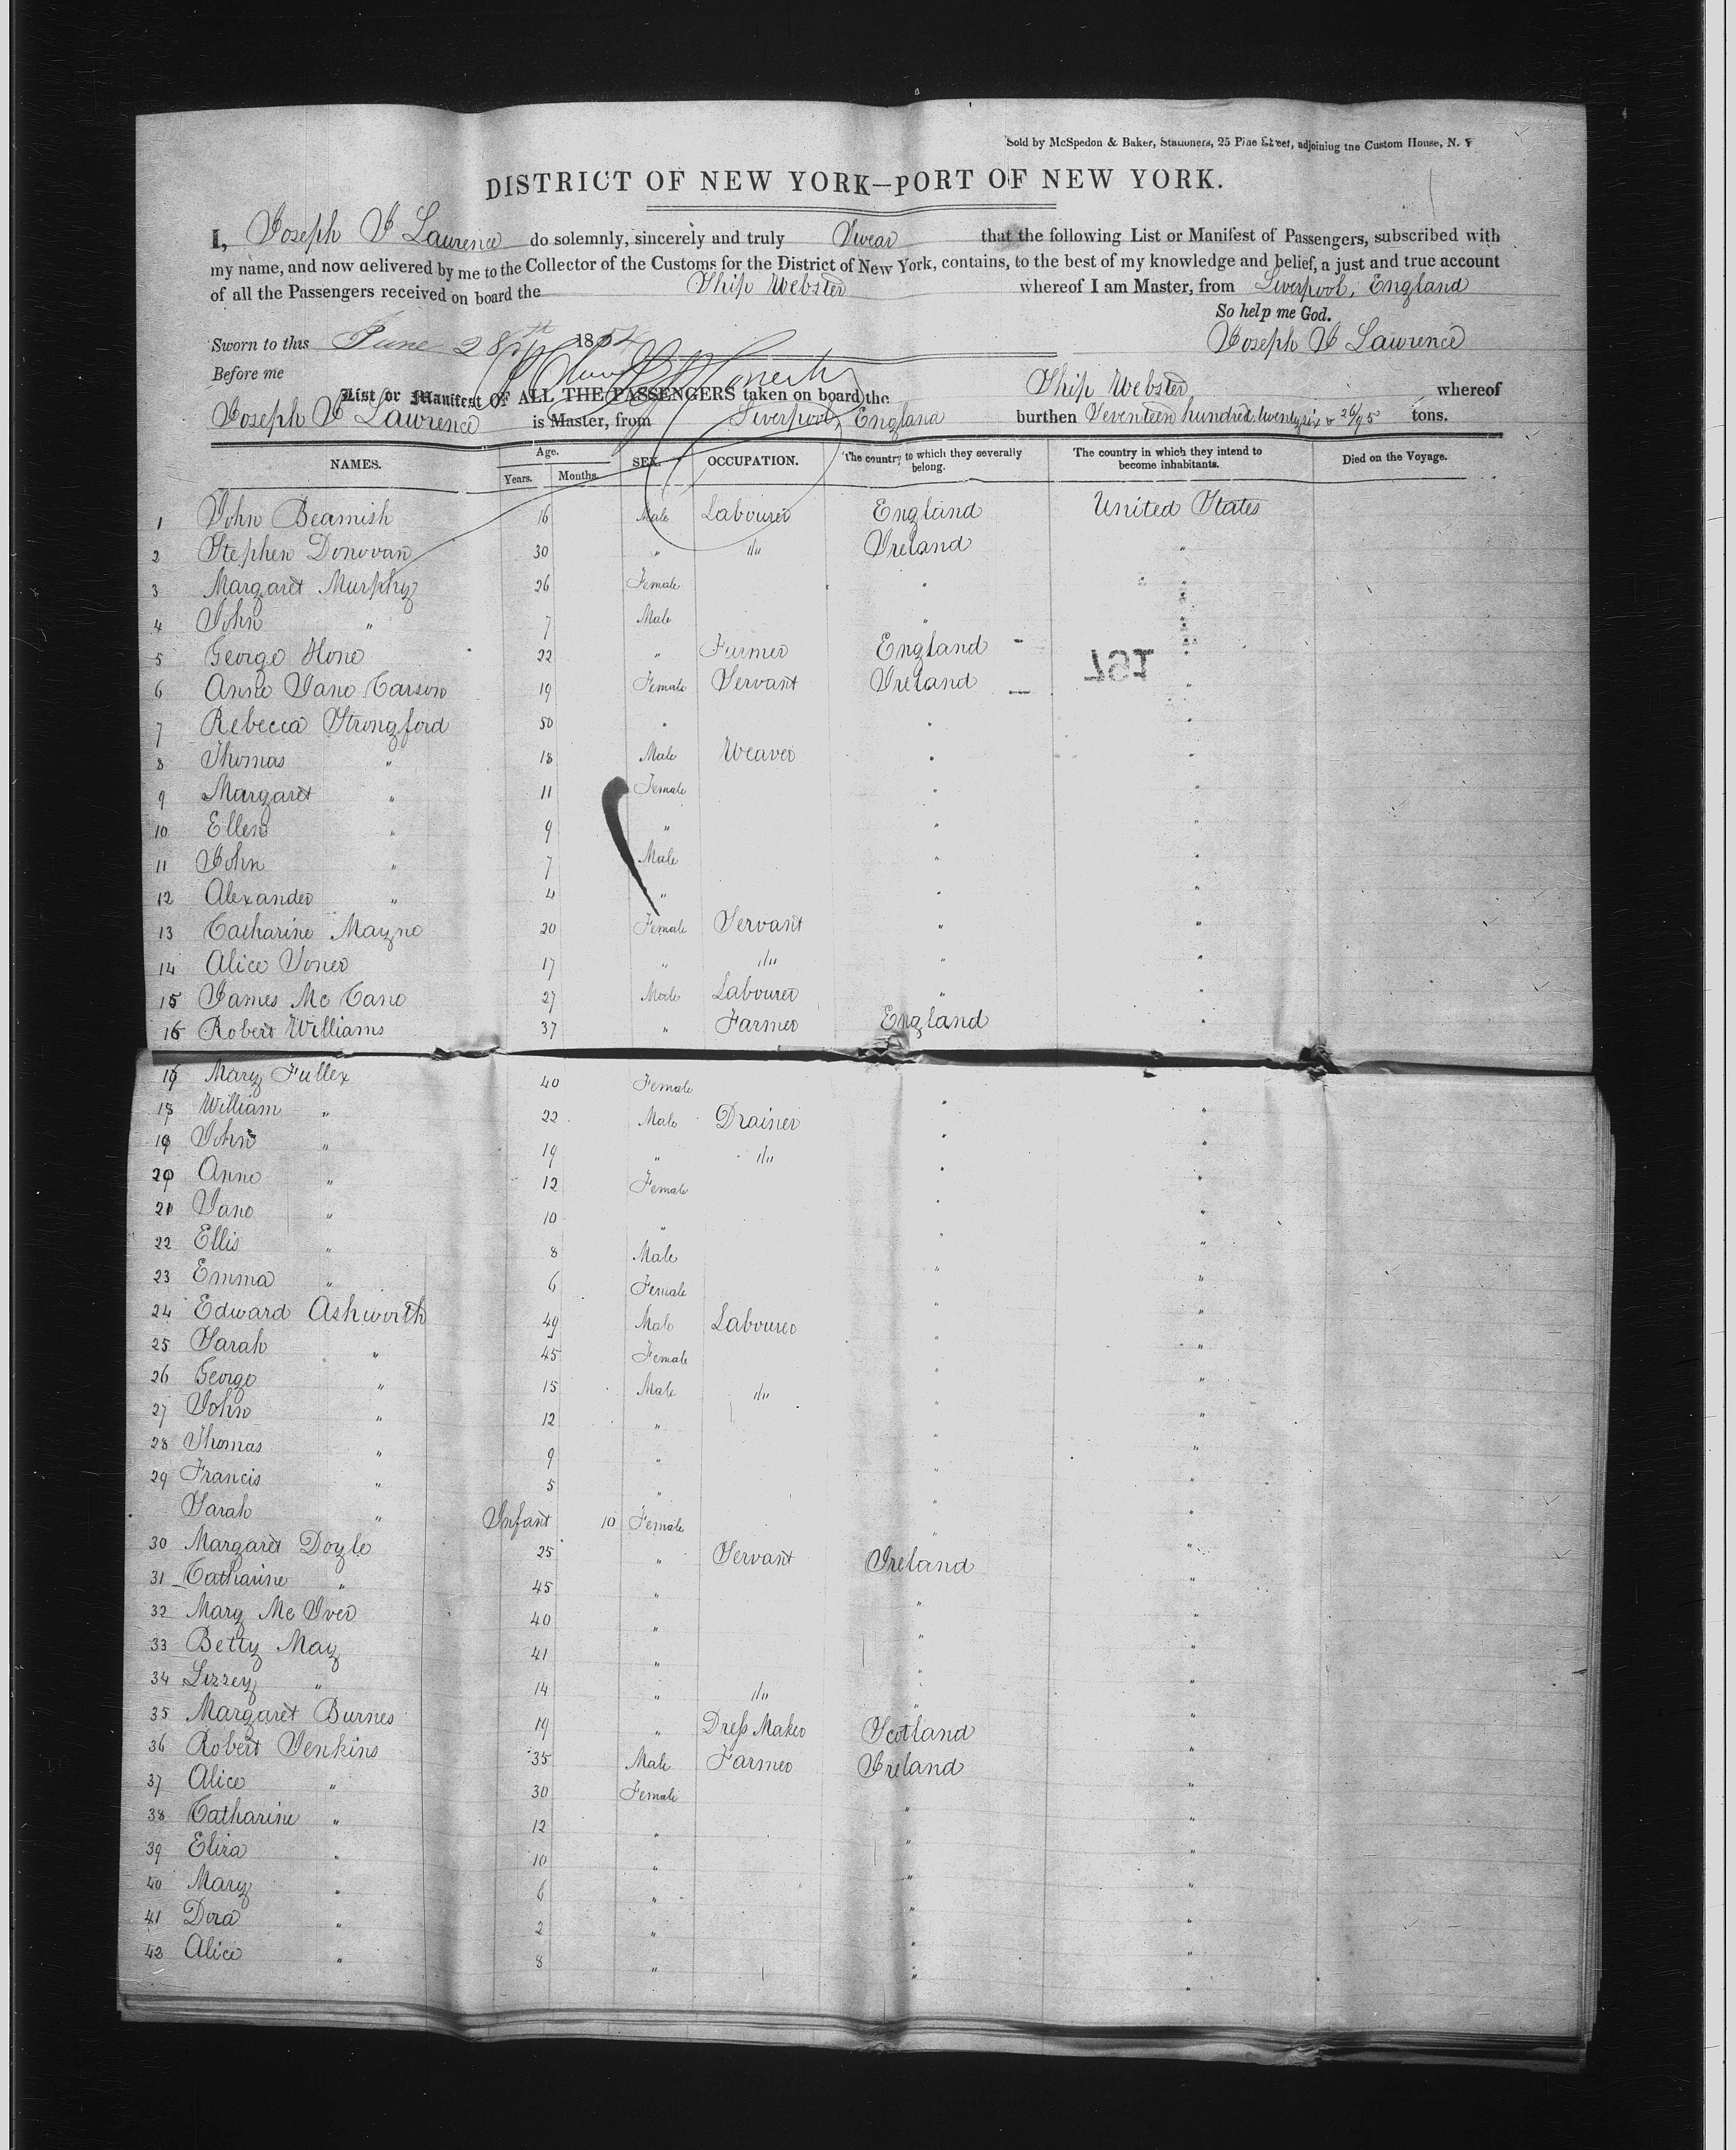 Sold by McSpedon & Baker, Stationers, 25 Pine Street, adjoining the Custom House, N. Y
DISTRICT OF NEW YORK—PORT OF NEW YORK.
I, Joseph J Lawrence do solemnly, sincerely and truly Swear that the following List or Manifest of Passengers, subscribed with
my name, and now delivered by me to the Collector of the Customs for the District of New York, contains, to the best of my knowledge and belief, a just and true account
of all the Passengers received on board the Ship Webster whereof I am Master, from Liverpool, England
So help me God.
Sworn to this June 28th 185 Joseph J Lawrence
Before me
List or Manifest OF ALL THE PASSENGERS taken on board the Ship Webster whereof
Joseph J Lawrence is Master, from Liverpool, England burthen Seventeen hundred twenty six & 26/95 tons.
NAMES. Age. Years. Months. SEX. OCCUPATION. The country to which they severally belong. The country in which they intend to become inhabitants. Died on the Voyage.
1 John Beamish 16 Male Labourer England United States
2 Stephen Donovan 30 " "/" Ireland "
3 Margaret Murphy 26 Female " "
4 John " 7 Male " "
5 George Hone 22 " Farmer England "
6 Anne Jane Carson 19 Female Servant Ireland "
791
7 Rebecca Strongford 50 " " "
8 Thomas " 18 Male Weaver " "
9 Margaret " 11 Female " "
10 Ellen " 9 " " "
11 John " 7 Male " "
12 Alexander " 4 " " "
13 Catharine Mayne 20 Female Servant " "
14 Alice Jones 17 " "/" " "
15 James Mc Cane 27 Male Labourer " "
16 Robert Williams 37 " Farmer England "
17 Mary Fullex 40 Female " "
18 William " 22 Male Drainer " "
19 John " 19 " "/" " "
20 Anne " 12 Female " "
21 Jane " 10 " " "
22 Ellis " 8 Male " "
23 Emma " 6 Female " "
24 Edward Ashworth 49 Male Labourer " "
25 Sarah " 45 Female " "
26 George " 15 Male "/" " "
27 John " 12 " " "
28 Thomas " 9 " " "
29 Francis " 5 " " "
Sarah " Infant 10 Female " "
30 Margaret Doyle 25 " Servant Ireland "
31 Catharine " 45 " " "
32 Mary Mc Iver 40 " " "
33 Betty May 41 " " "
34 Lizzey " 14 " "/" " "
35 Margaret Burnes 19 " Dress Maker Scotland "
36 Robert Jenkins 35 Male Farmer Ireland "
37 Alice " 30 Female " "
38 Catharine " 12 " " "
39 Eliza " 10 " " "
40 Mary " 6 " " "
41 Dora " 2 " " "
42 Alice " 8 " " "